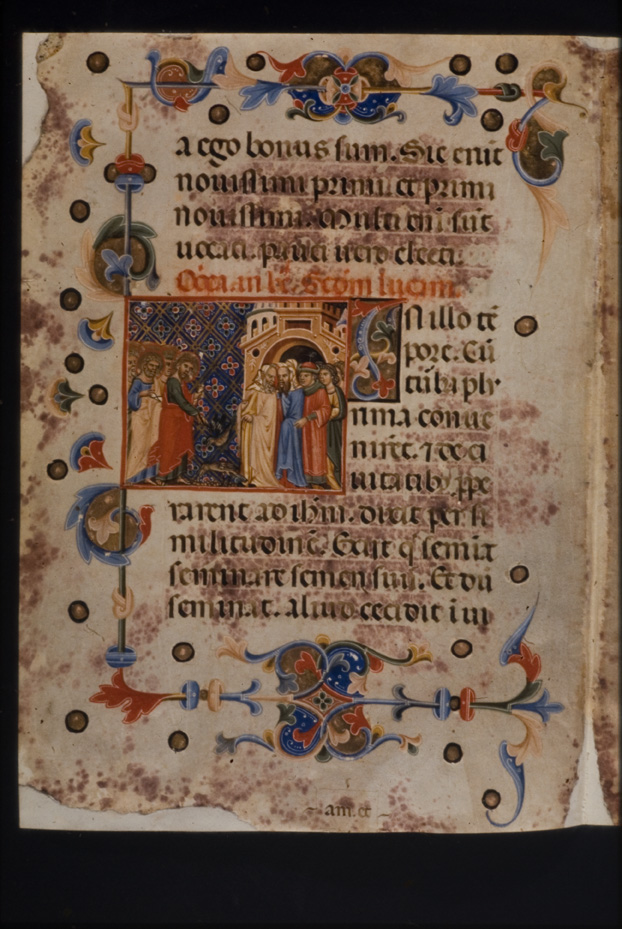 a ego bonus sum. Sic erūt
nouissimi primi et primi
nouissimi. Multi eni3 sūt
uocati. pauci uero electi.
Scd̄m lucam.
IN illo tē
pore. Cū
turba plr̄
rima conue
niret. ⁊ de ci
uitatib3 ꝓpe
rarent ad ihm̄. dixit per si
militudinē. Exijt q̄ seminat
seminare semen suū. Et dū
seminat. aliud cecidit i ui
am. et